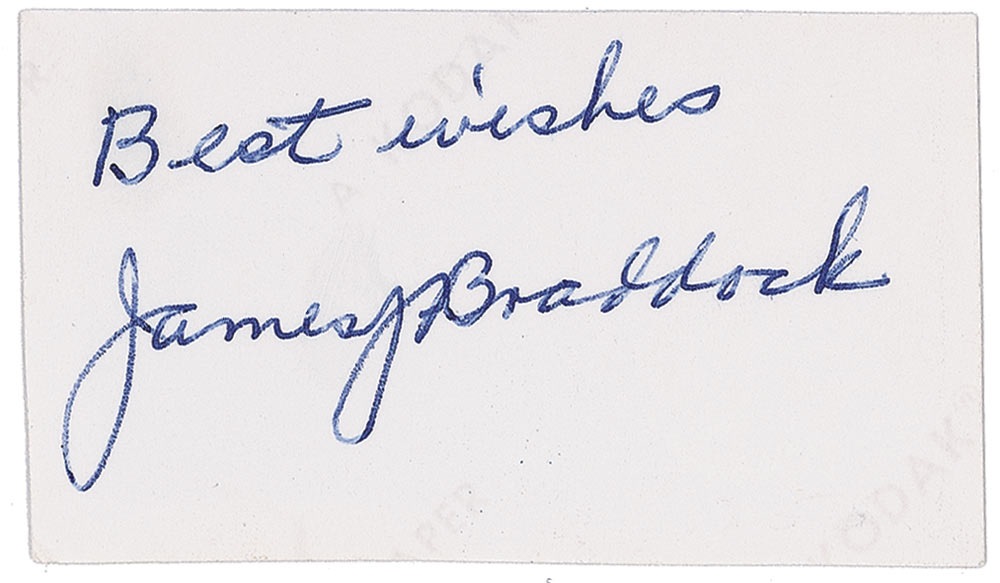 Best wishes
James J Braddock
A KODAK
PAPER
KODAK